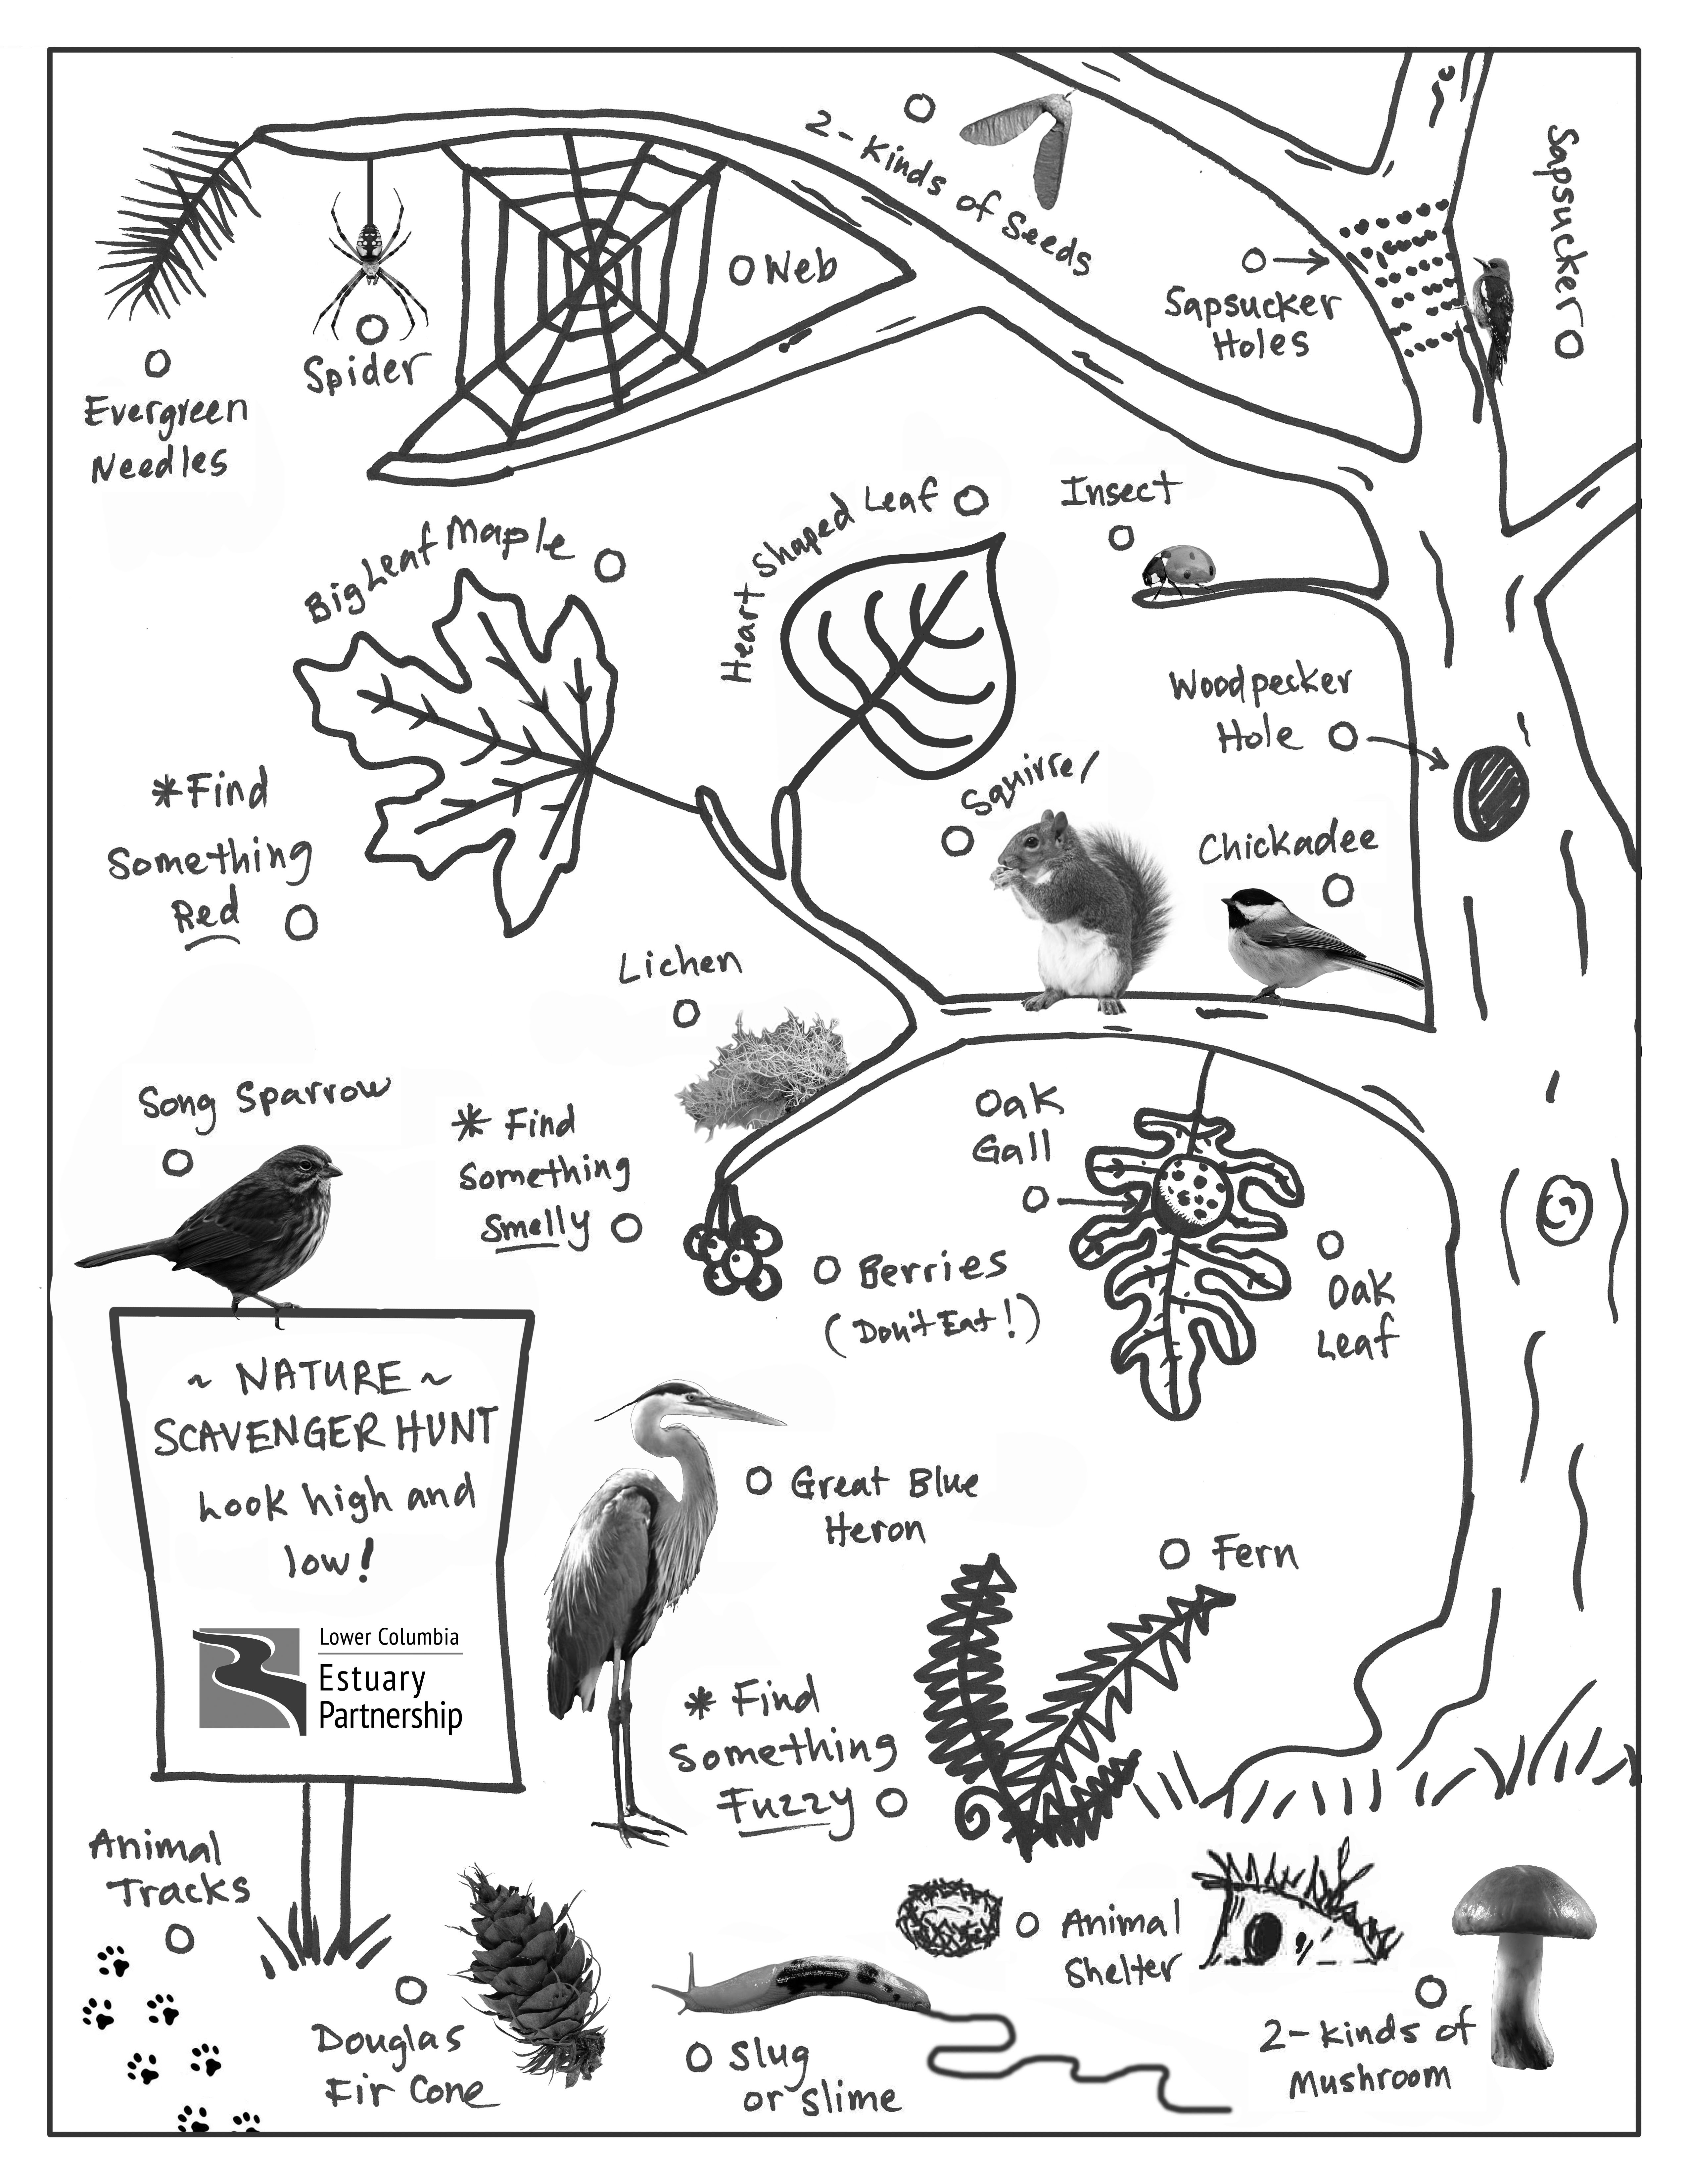 2-Kinds of Seeds
Sapsucker
Web
Sapsucker
Holes
Spider
Evergreen
Needles
Big Leaf Maple
Heart Shaped Leaf
Insect
Woodpecker
Hole
*Find
Something
Red
Squirrel
Chickadee
Lichen
Song Sparrow
* Find
Something
Smelly
Oak
Gall
Berries
(Don't Eat!)
Oak
Leaf
~ NATURE ~
SCAVENGER HUNT
Look high and
low!
Lower Columbia
Estuary
Partnership
Great Blue
Heron
Fern
* Find
Something
Fuzzy
Animal
Tracks
Douglas
Fir Cone
Slug
or slime
Animal
Shelter
2-kinds of
Mushroom